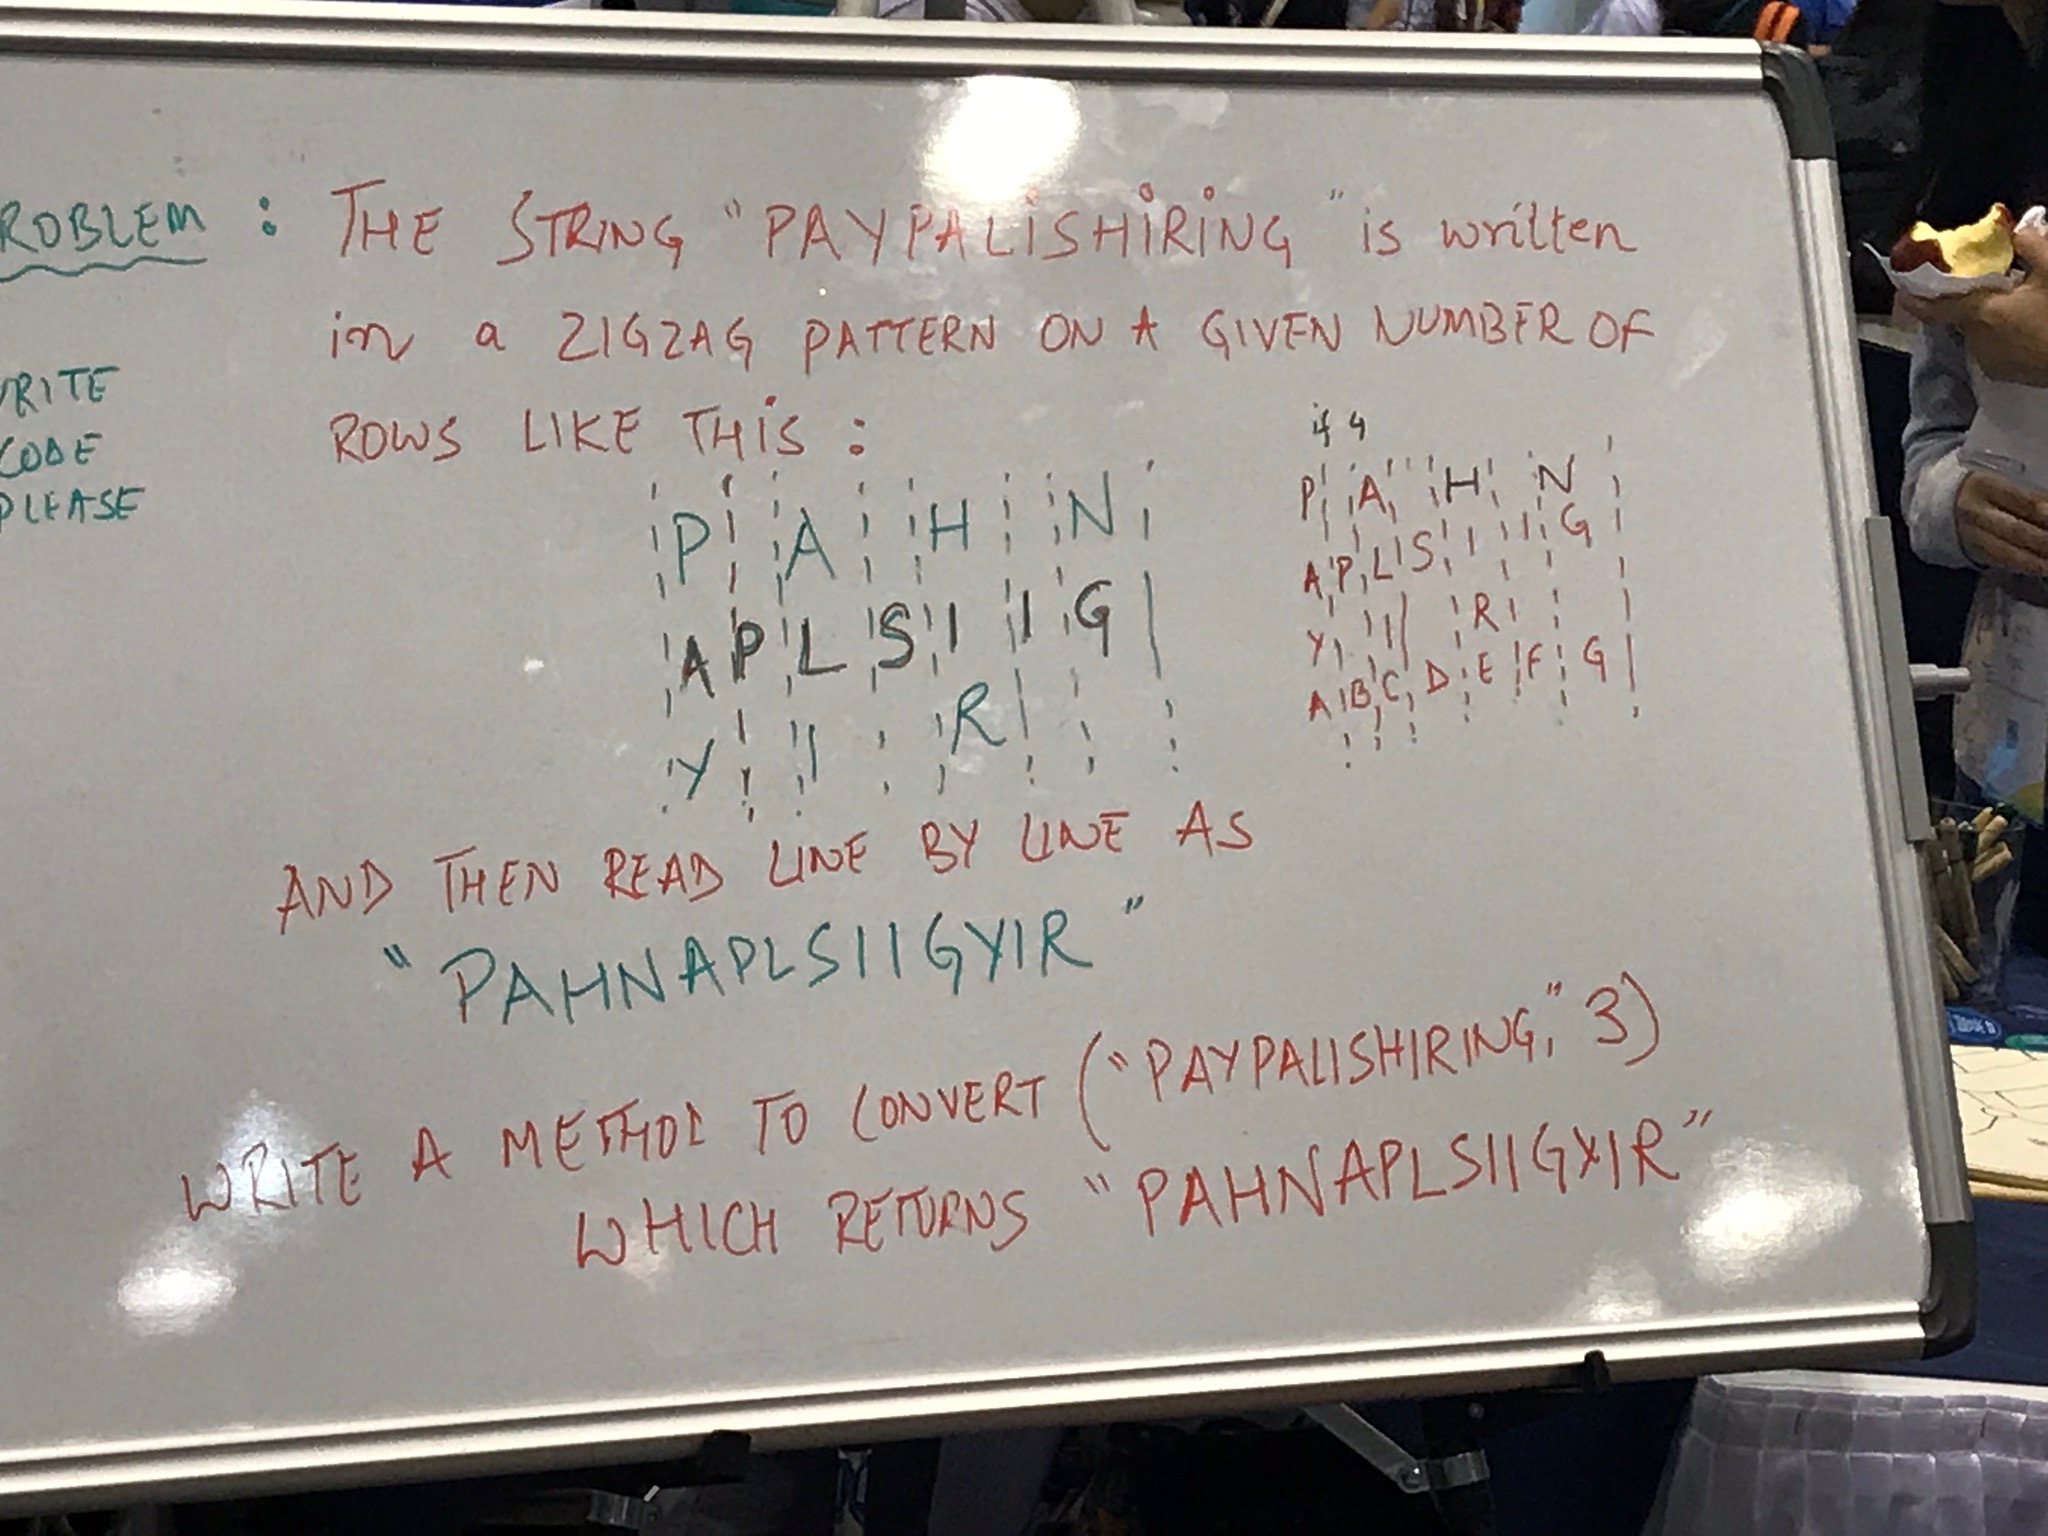 ROBLEM : THE STRING "PAYPALiSHiRiNG" is written
in a ZIGZAG PATTERN ON A GIVEN NUMBER OF
ROWS LIKE THiS :
WRITE
CODE
PLEASE
P A H N
A P L S I I G
Y I R
if 4
P A H N
G
A P L S I I
Y I R
A B C D E F G
AND THEN READ LINE BY LINE AS
"PAHNAPLSIIGYIR"
WRITE A METHOD TO CONVERT ("PAYPALISHIRING," 3)
WHICH RETURNS "PAHNAPLSIIGYIR"